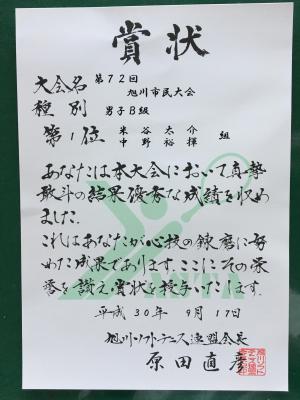 賞状
大会名 第72回
旭川市民大会
種別 男子B級
第1位 米谷太介
中野裕揮 組
あなたは本大会において真摯
敢斗の結果優秀な成績を収め
ました
これはあなたが心技の錬磨に努
めた成果でありますここにその栄
誉を讃え賞状を授与いたします
平成30年9月17日
旭川ソフトテニス連盟会長
原田直彦